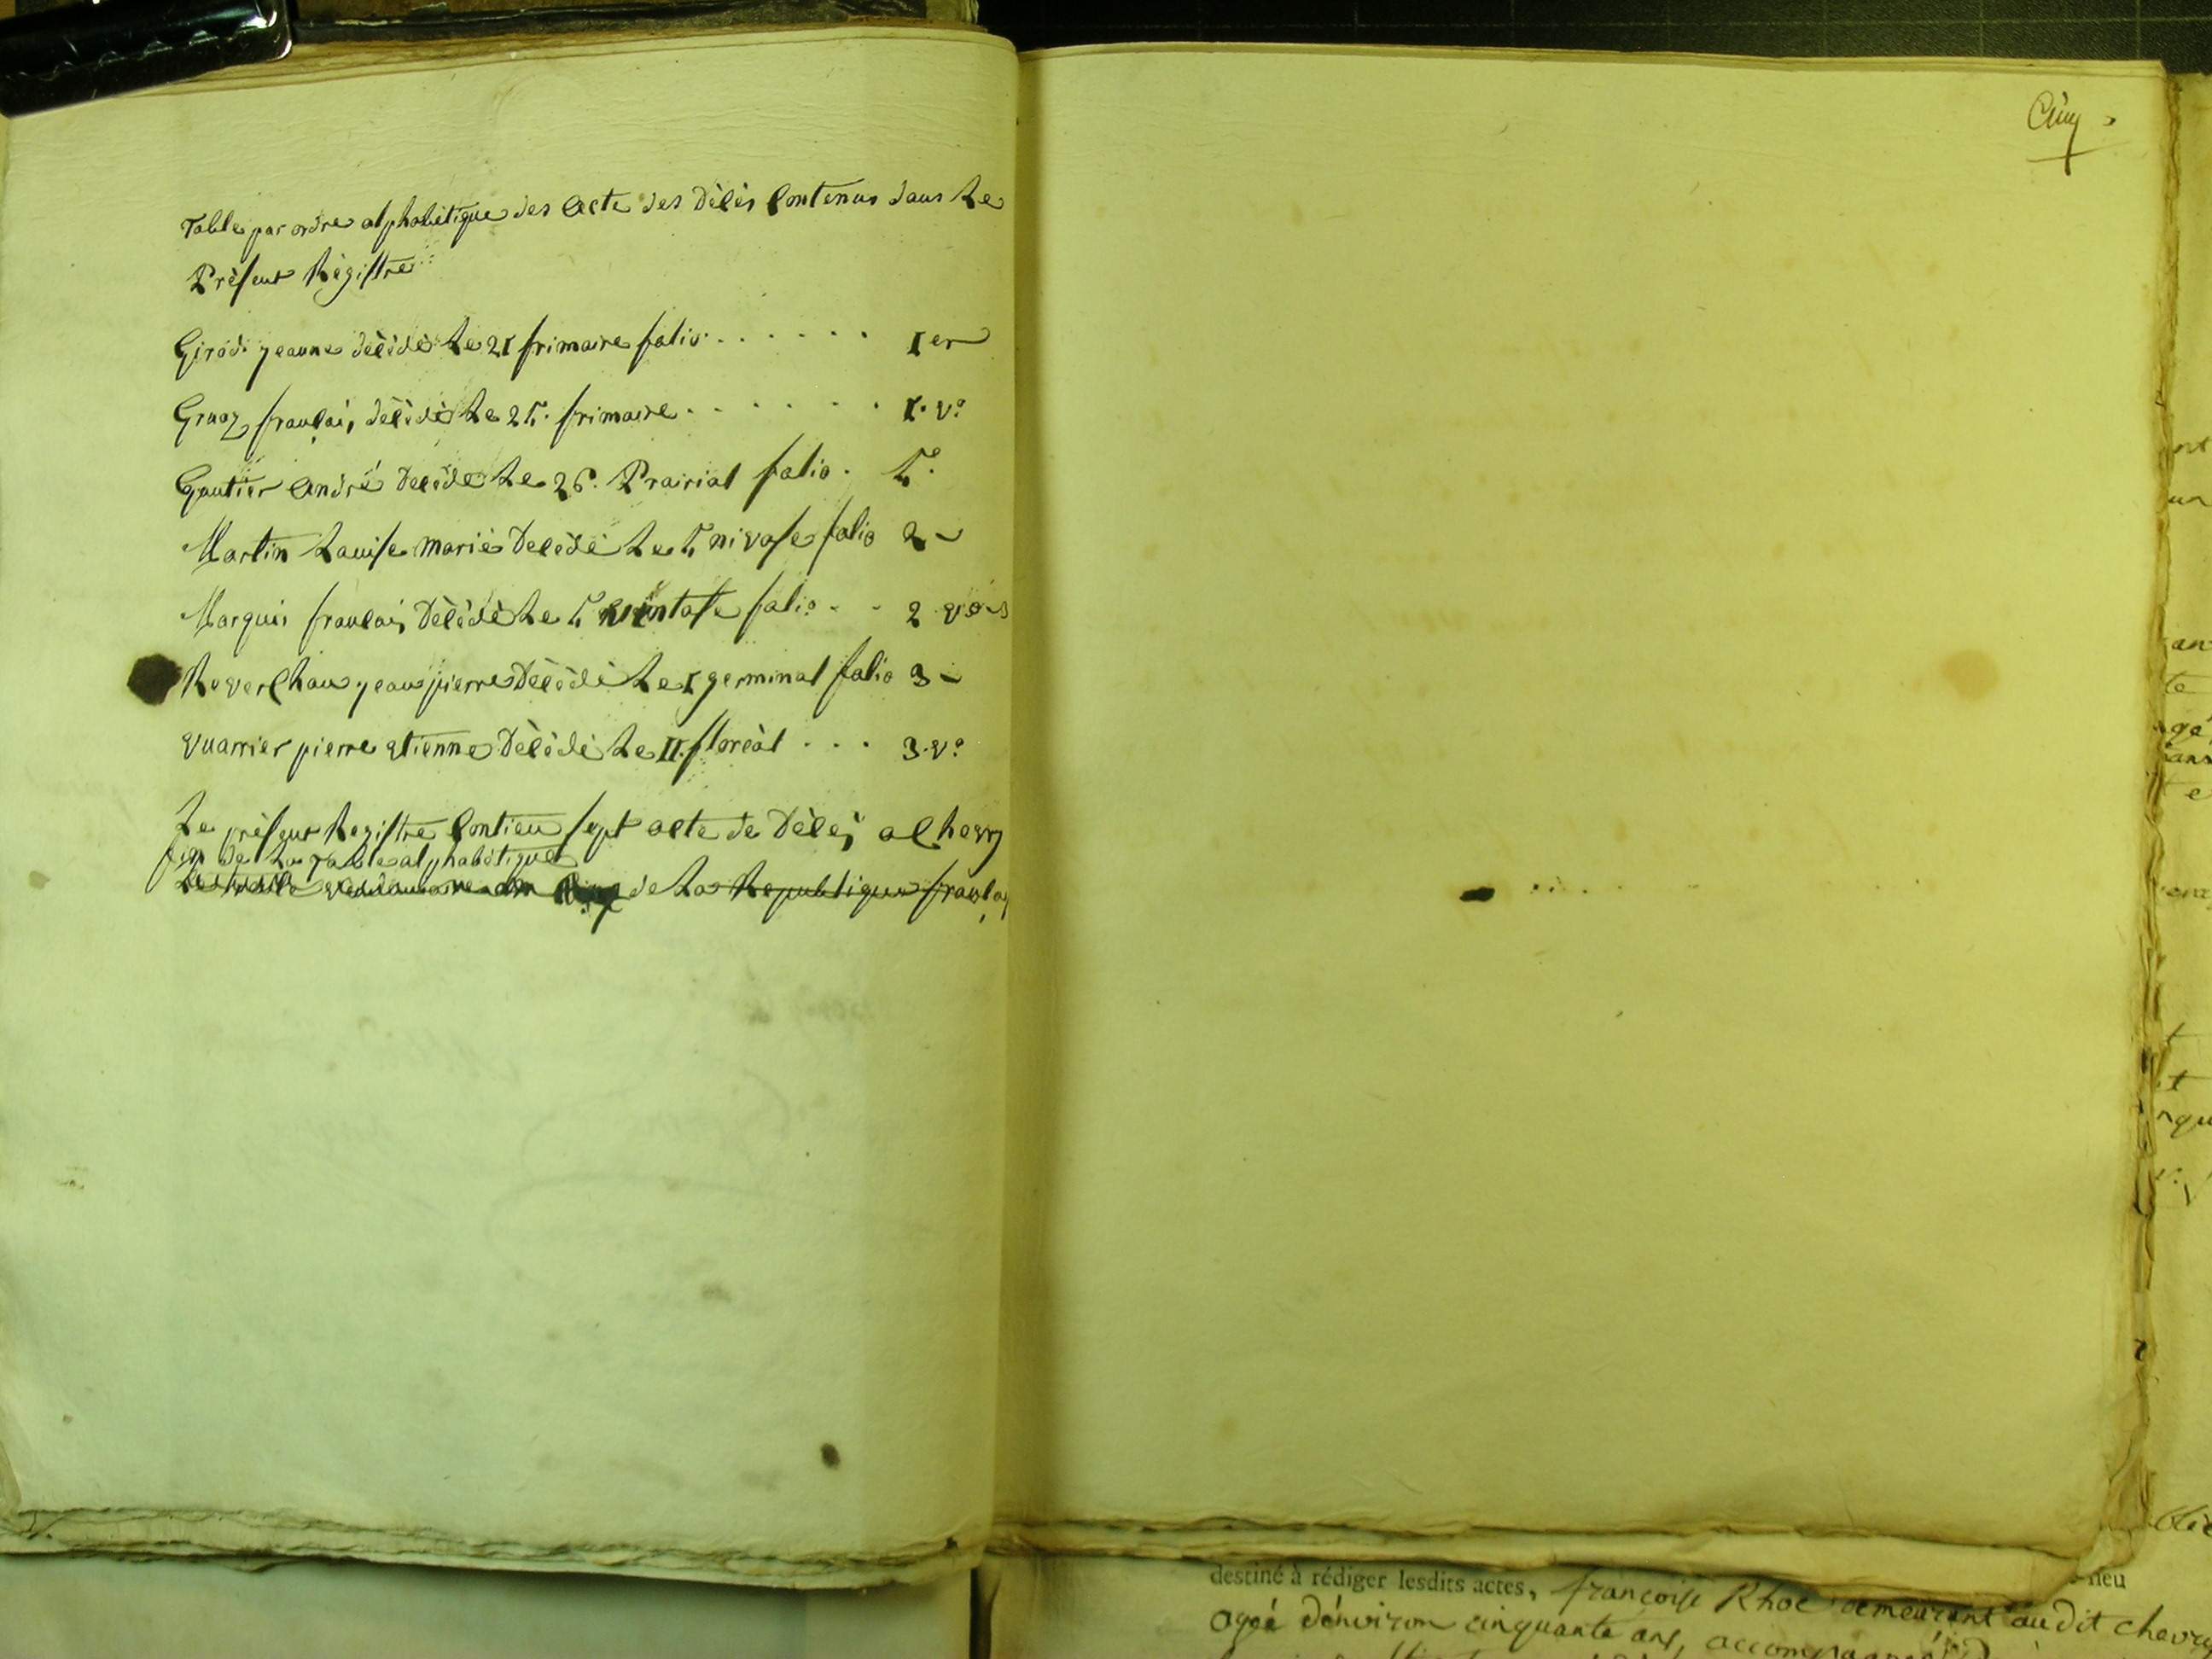 Table par ordre alphabétique des Acte des Décès Contenus dans Le
Présent Régistre
Girod jeanne décédé Le 21 frimaire folio . . . . . . 1er
Gruaz françois décédé Le 25. frimaire . . . . . . . 1. vo
Gautier André décédé Le 26. Prairial folio . 4.
Martin Louise marie decédé Le 5 nivose folio 2
Marquis françois Décédé Le 5 ventose folio . . 2 vo
Reverchon jean pierre Décédé Le 1 germinal folio 3
vuarrier pierre etienne Décédé Le 11. floréal . . . 3. vo
Le présent Registre Contien sept acte de Décès a Chevry
fin de La Table alphabétique
de La Republique
Cinq
nt
ur
an
te
e
t
t
destiné à rédiger lesdits actes, françoise Rhoe demeurant audit chevry
agé d'environ cinquante ans, accompagné